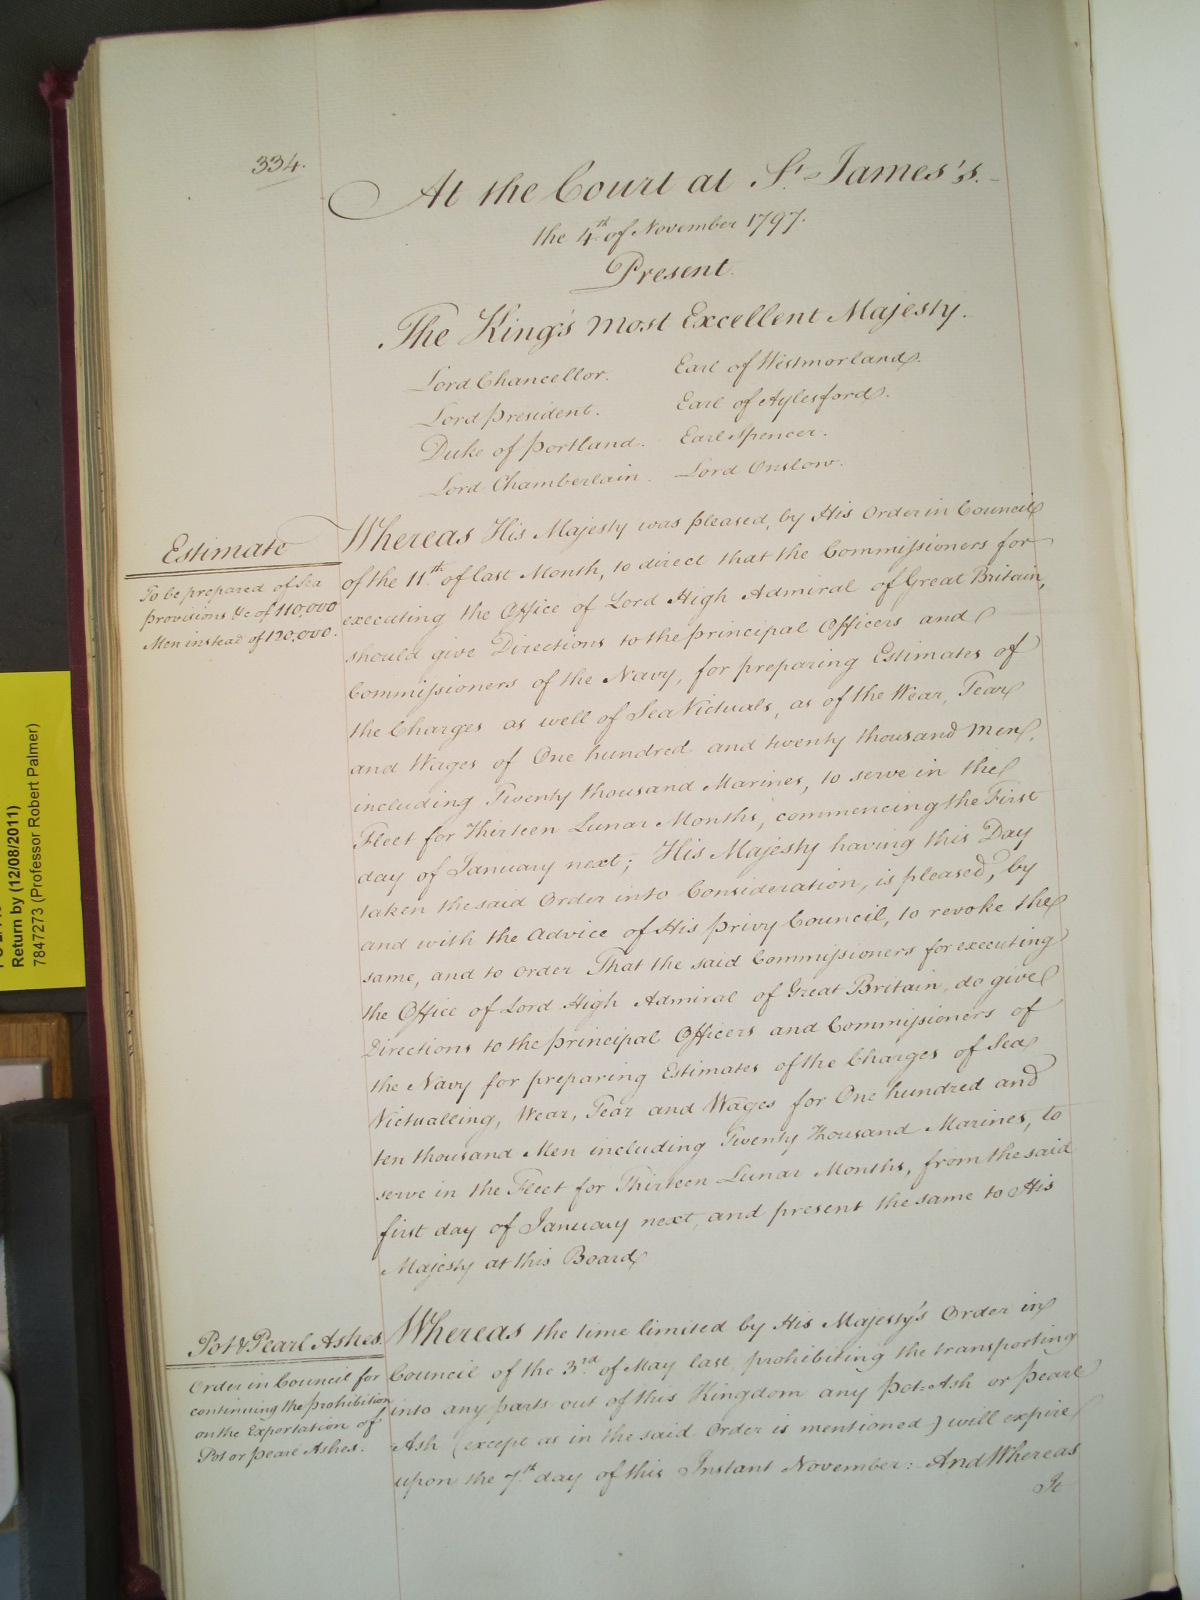 334.
At the Court at St. James's.
the 4th of November 1797.
Present
The King's most Excellent Majesty.
Lord Chancellor. Earl of Westmorland.
Lord President. Earl of Aylesford.
Duke of Portland. Earl Spencer.
Lord Chamberlain. Lord Onslow.
Estimate
To be prepared of Sea
provisions &c of 110,000
Men instead of 120,000.
Whereas His Majesty was pleased, by His Order in Council
of the 11th of last Month, to direct that the Commissioners for
executing the Office of Lord High Admiral of Great Britain,
should give Directions to the principal Officers and
Commissioners of the Navy, for preparing Estimates of
the Charges as well of Sea Victuals, as of the Wear, Tear
and Wages of One hundred and twenty thousand Men,
including Twenty thousand Marines, to serve in the
Fleet for Thirteen Lunar Months, commencing the First
day of January next; His Majesty having this Day
taken the said Order into Consideration, is pleased, by
and with the Advice of His Privy Council, to revoke the
same, and to order That the said Commissioners for executing
the Office of Lord High Admiral of Great Britain, do give
Directions to the principal Officers and Commissioners of
the Navy for preparing Estimates of the Charges of Sea
Victualling, Wear, Tear and Wages for One hundred and
ten thousand Men including Twenty Thousand Marines, to
serve in the Fleet for Thirteen Lunar Months, from the said
first day of January next, and present the same to His
Majesty at this Board
Pot & Pearl Ashes
Order in Council for
continuing the prohibition
on the Exportation of
Pot or pearl Ashes.
Whereas the time limited by His Majesty's Order in
Council of the 3rd of May last, prohibiting the transporting
into any parts out of this Kingdom any Pot-Ash or pearl
Ash (except as in the said Order is mentioned) will expire
upon the 7th day of this Instant November:- And Whereas
It
Return by (12/08/2011)
7847273 (Professor Robert Palmer)